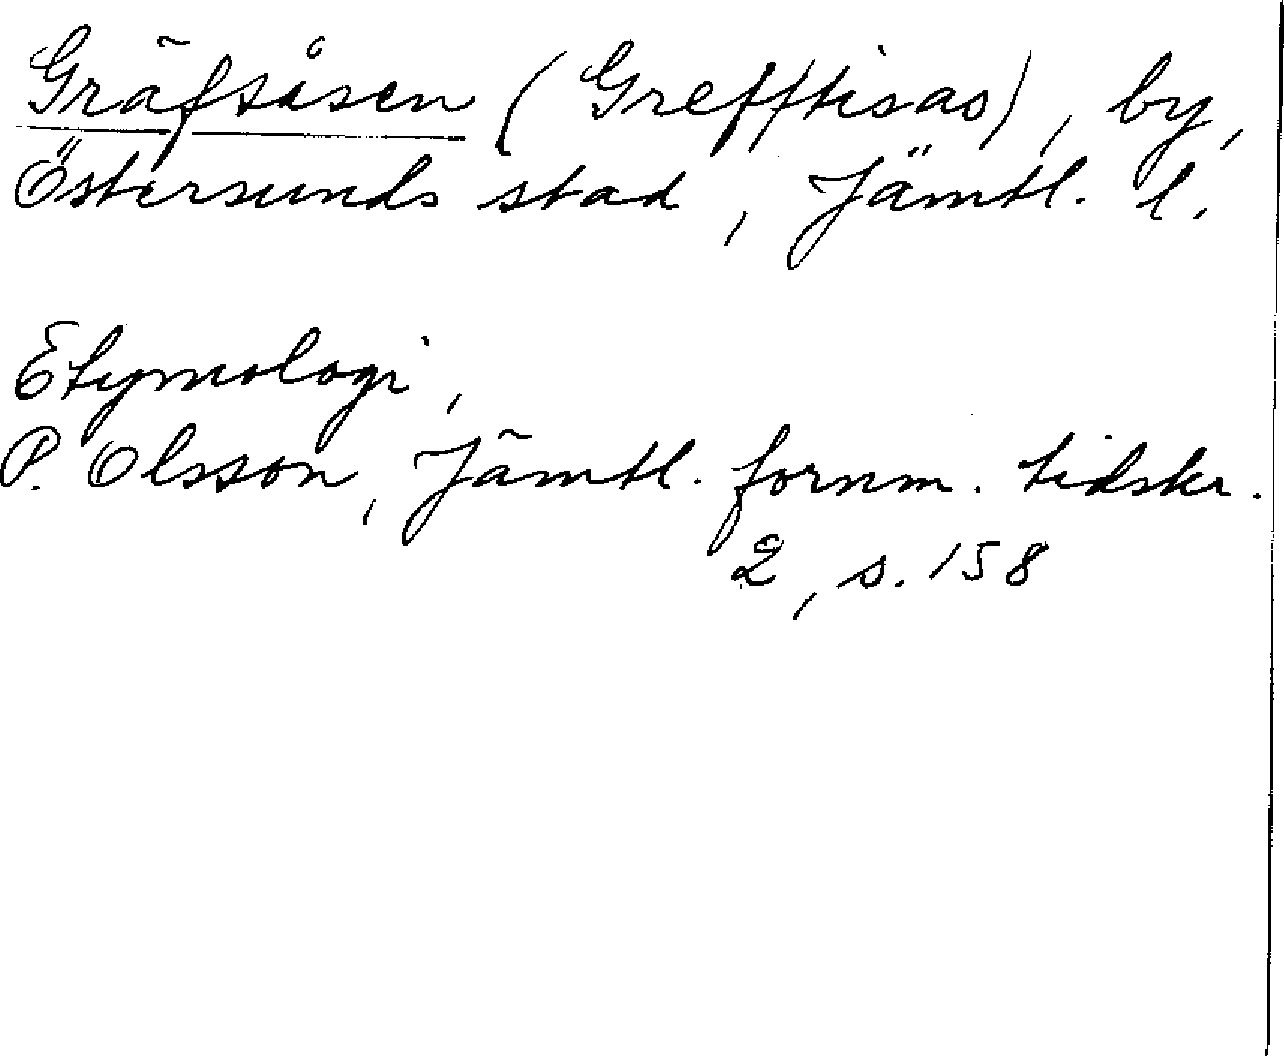 Gräfsåsen (Grefftisas), by,
Östersunds stad, Jämtl. l.
Etymologi,
P. Olsson, Jämtl. fornm. tidskr.
2, s. 158